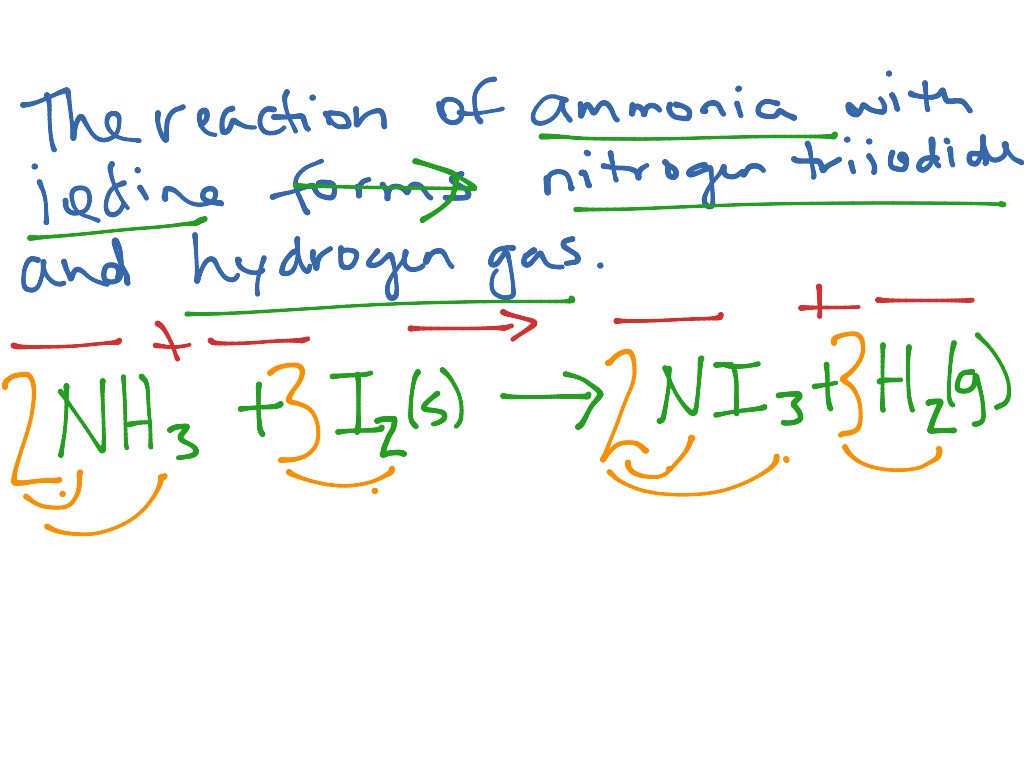 The reaction of ammonia with
iodine forms nitrogen triiodide
and hydrogen gas.
2NH₃ + 3I₂(s) → 2NI₃ + 3H₂(g)